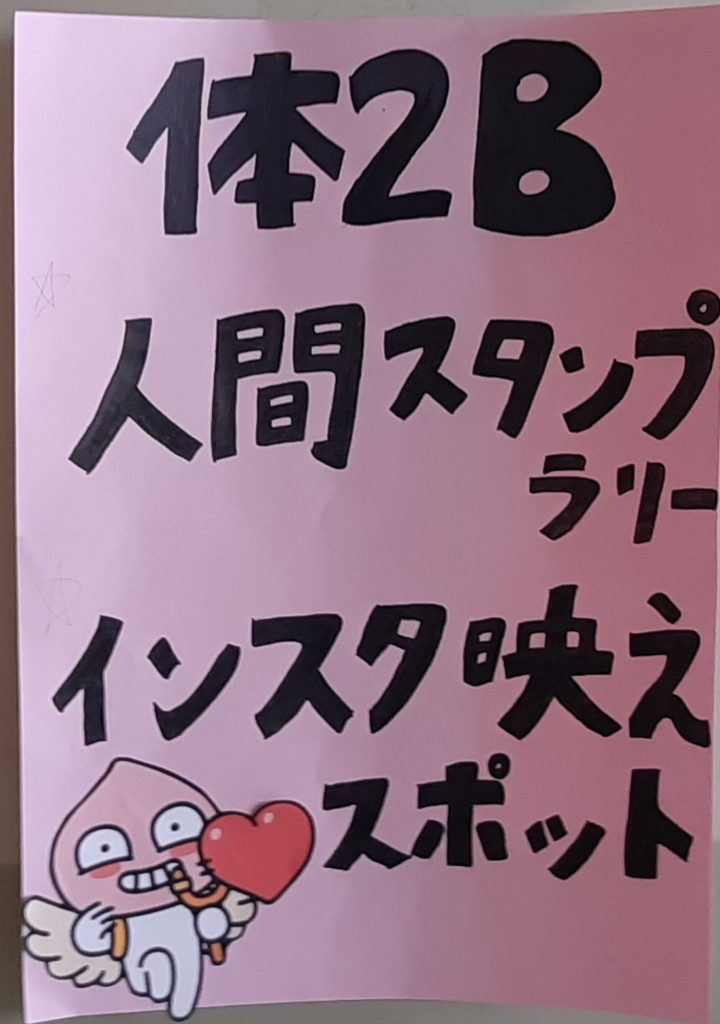 体2B
人間スタンプ
ラリー
インスタ映え
スポット